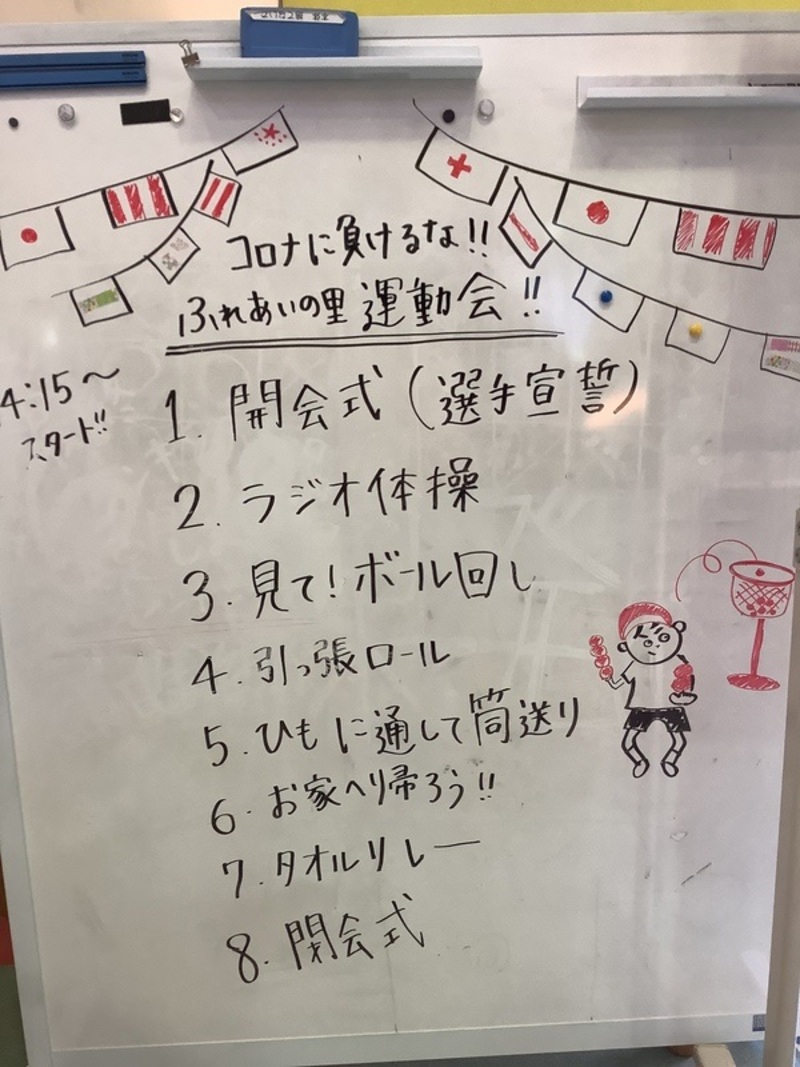 コロナに負けるな!!
ふれあいの里 運動会!!
4:15〜
スタート!!
1. 開会式(選手宣誓)
2. ラジオ体操
3. 見て!ボール回し
4. 引っ張ロール
5. ひもに通して筒送り
6. お家へ帰ろう!!
7. タオルリレー
8. 閉会式